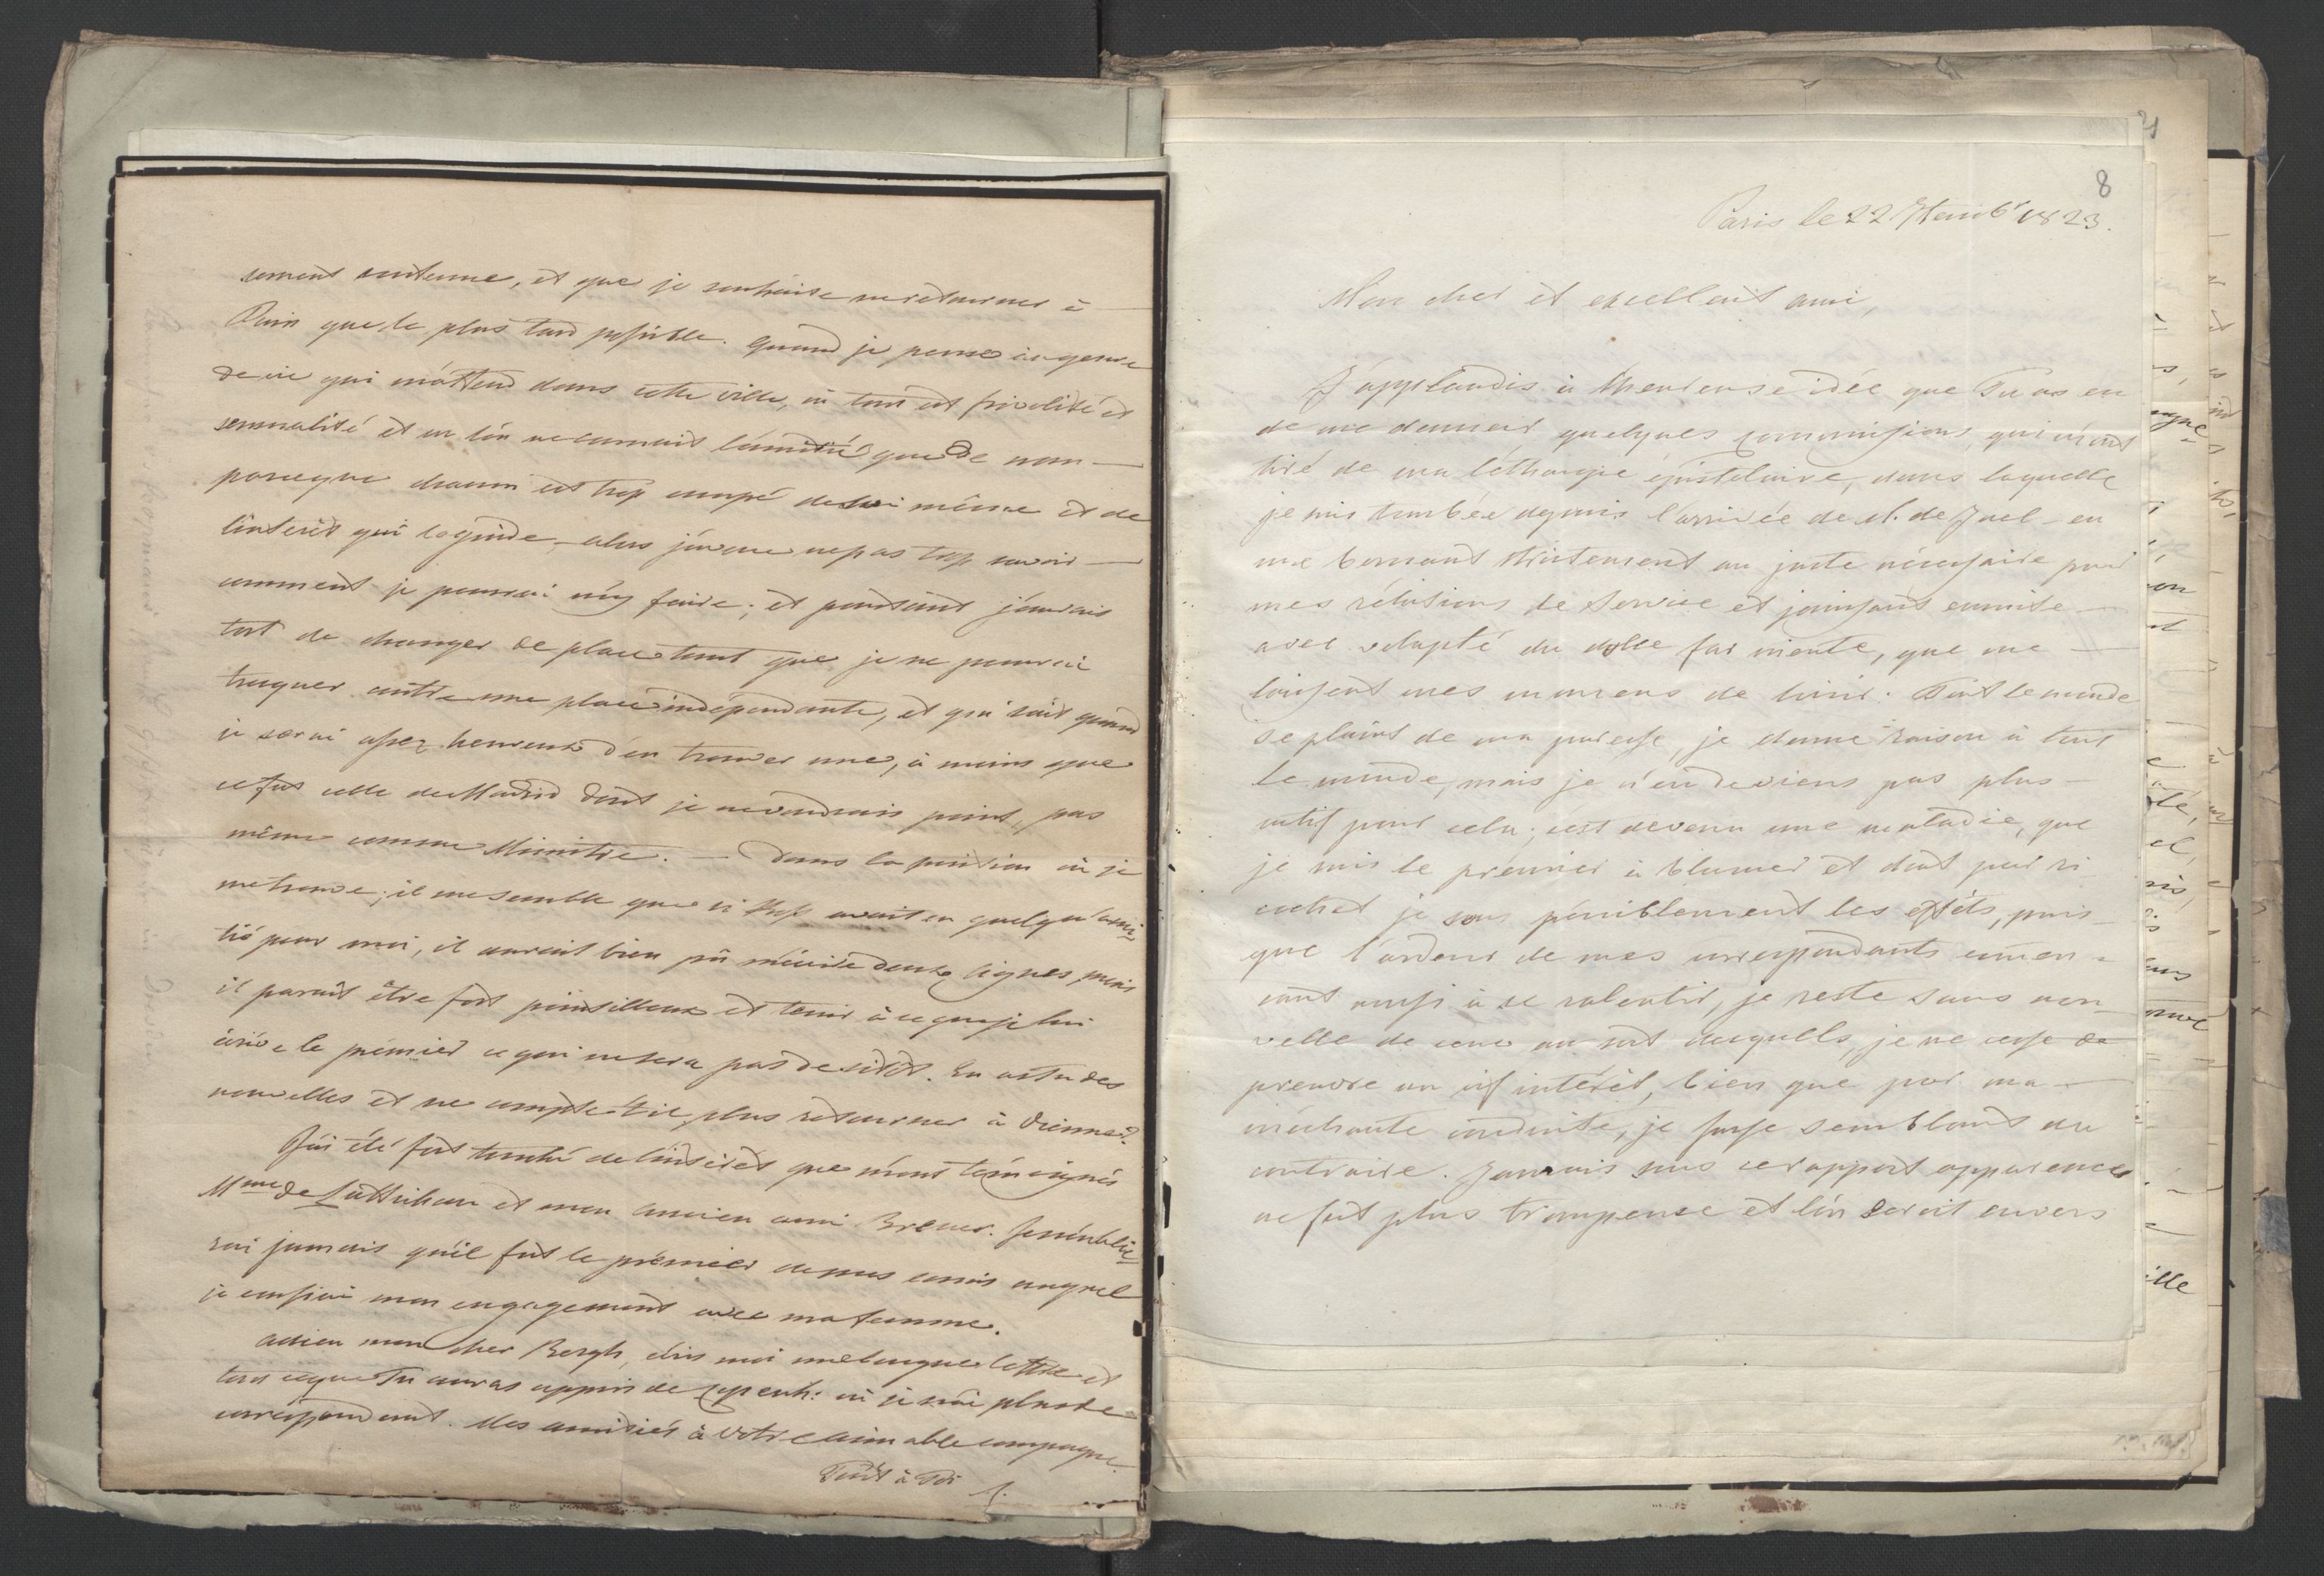 sement contenue, et que je souhaise ne retourner à
Paris que le plus tard possible. Quand je pense au genre
de vie qui m'attend dans cette ville, où tout est frivolité et
sensualité et où l'ón ne connait l'amitié que de nom
parceque chacun est trop occupé de soi même et de
l'interêt qui le guide, alors j'avoue ne pas trop savoir
comment je pourrai m'y faire; et pourtant j'aurais
tort de changer de place tant que je ne pourrai
troquer contre une place indépendante, et qui sait quand
je serai assez heureux d'en trouver une, à moins que
ce fut celle de Madrid dont je ne voudrais point, pas
même comme Ministre. — Dans la position où je
me trouve, il me semble que si avait eu quelqu'ami-
tié pour moi, il aurait bien pû m'écrire deux lignes, mais
il parait être fort pointilleux et tenir à ce que je lui
écrive le prémier ce qui ne sera pas de sitôt. En as tu des
nouvelles et ne compte t'il plus retourner à Vienne?
J'ai été fort touché de l'intérêt que m'ont témoignés
Mme de Lüttichau et mon ancien ami Breuer. Je n'oublie-
rai jamais qu'il fut le prémier de mes amis auquel
je confiai mon engagement avec ma femme.
Adieu mon cher Bergh, écris moi une longue lettre et
tout ce que Tu auras appris de Copenh: où je n'ai plus de
correspondant. Mes amitiés à votre aimable compagne.
Tout à Toi
8
Paris le 22 7tembr 1823.
Mon cher et excellent ami,
J'applaudis à l'heureuse idée que Tu as eu
de me donner quelques commissions, qui m'ont
tiré de ma léthargie épistolaire, dans laquelle
je suis tombée depuis l'arrivée de M. de Juel en
me bornant strictement au juste nécessaire pour
mes rélations de Service et jouissant ensuite
avec volupté du dolce far niente, que me
laissent mes momens de loisir. Tout le monde
se plaint de ma paresse, je donne raison à tout
le monde, mais je n'en deviens pas plus
actif pour cela; c'est devenu une maladie, que
je suis le prémier à blamer et dont par ri
cochet je sens péniblement les effets, puis-
que l'ardeur de mes correspondants commen-
cant aussi à se ralentir, je reste sans nou-
velle de ceux au sort desquells, je ne cesse de
prendre un vif intérêt, bien que par ma
méchante conduite, je fasse semblant du
contraire. Jamais sous ce rapport apparence
ne fut plus trompeuse et l'ón serait envers